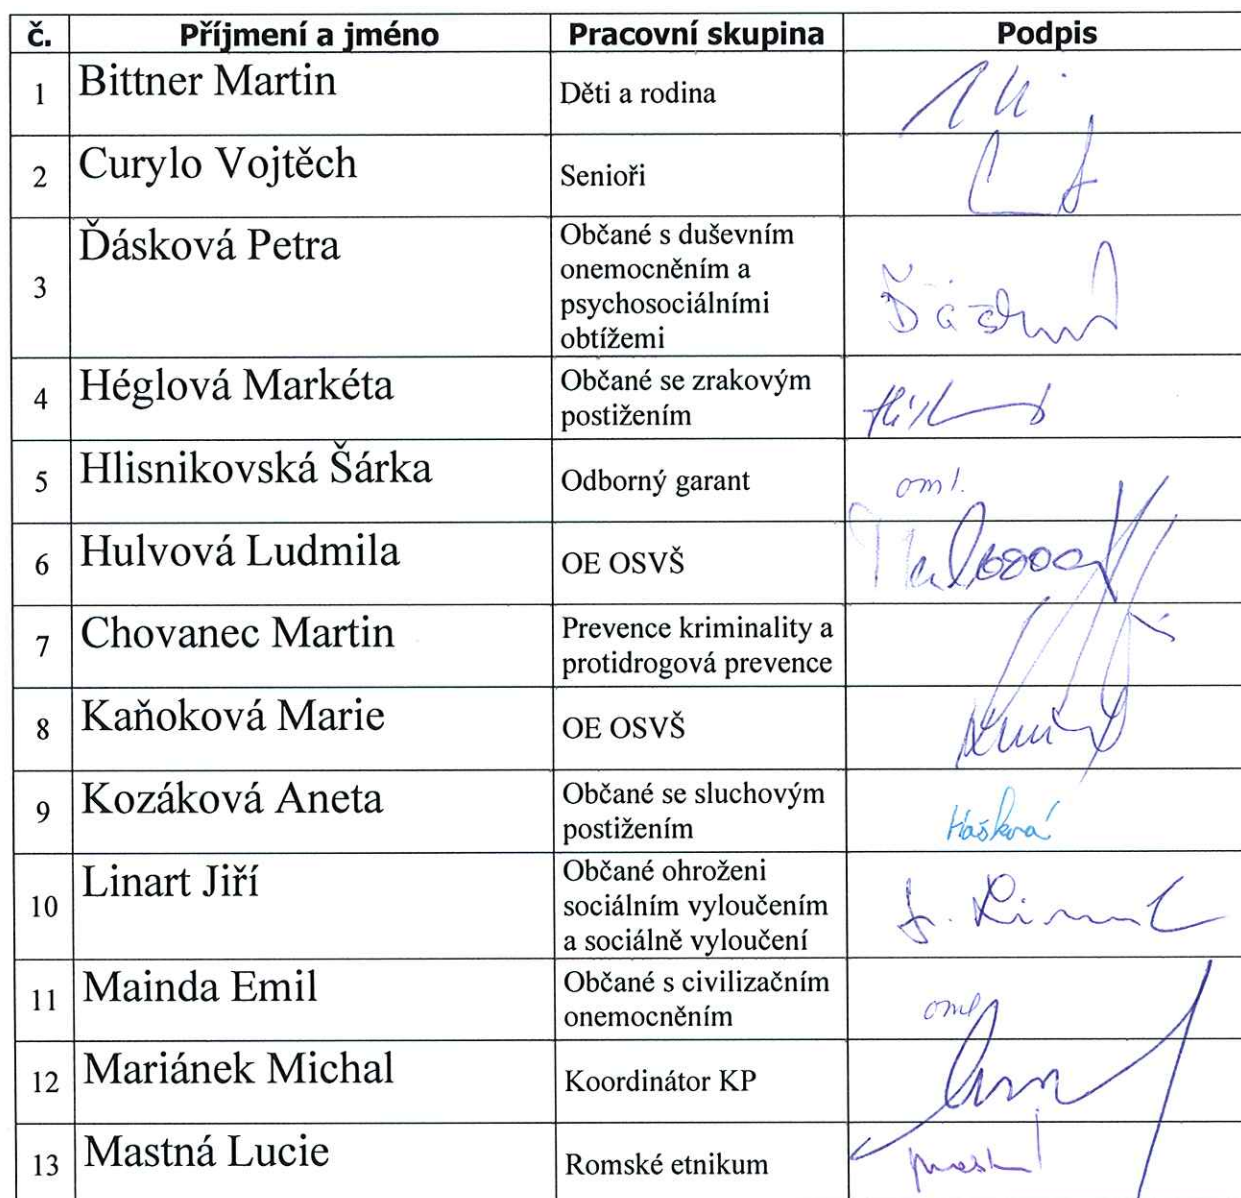 č. Příjmení a jméno Pracovní skupina Podpis
1 Bittner Martin Děti a rodina
2 Curylo Vojtěch Senioři
3 Ďásková Petra Občané s duševním
onemocněním a
psychosociálními
obtížemi
4 Héglová Markéta Občané se zrakovým
postižením
5 Hlisnikovská Šárka Odborný garant oml.
6 Hulvová Ludmila OE OSVŠ
7 Chovanec Martin Prevence kriminality a
protidrogová prevence
8 Kaňoková Marie OE OSVŠ
9 Kozáková Aneta Občané se sluchovým
postižením Hášková
10 Linart Jiří Občané ohroženi
sociálním vyloučením
a sociálně vyloučení
11 Mainda Emil Občané s civilizačním
onemocněním oml
12 Mariánek Michal Koordinátor KP
13 Mastná Lucie Romské etnikum